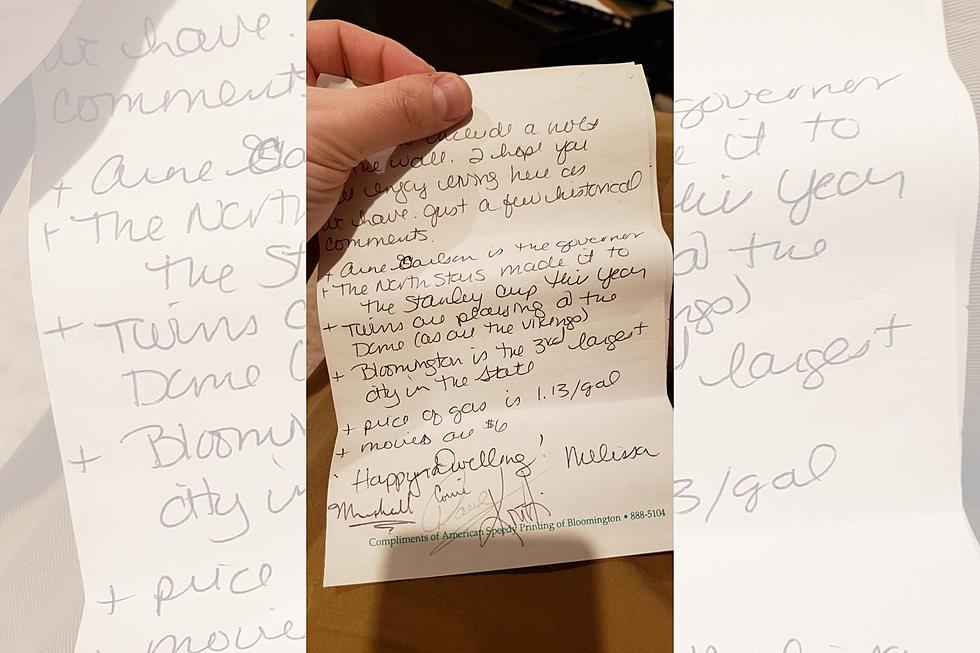 include a note
the wall. I hope you
enjoy living here as
we have. Just a few historical
comments.
+ Arne Carlson is the governer
+ The North Stars made it to
the Stanley Cup this year
+ Twins are playing @ the
Dome (as are the Vikings)
+ Bloomington is the 3rd largest
city in the State
+ price of gas is 1.13/gal
+ movies are $6
Happy Dwelling! Melissa
Marshall
Compliments of American Speedy Printing of Bloomington • 888-5104